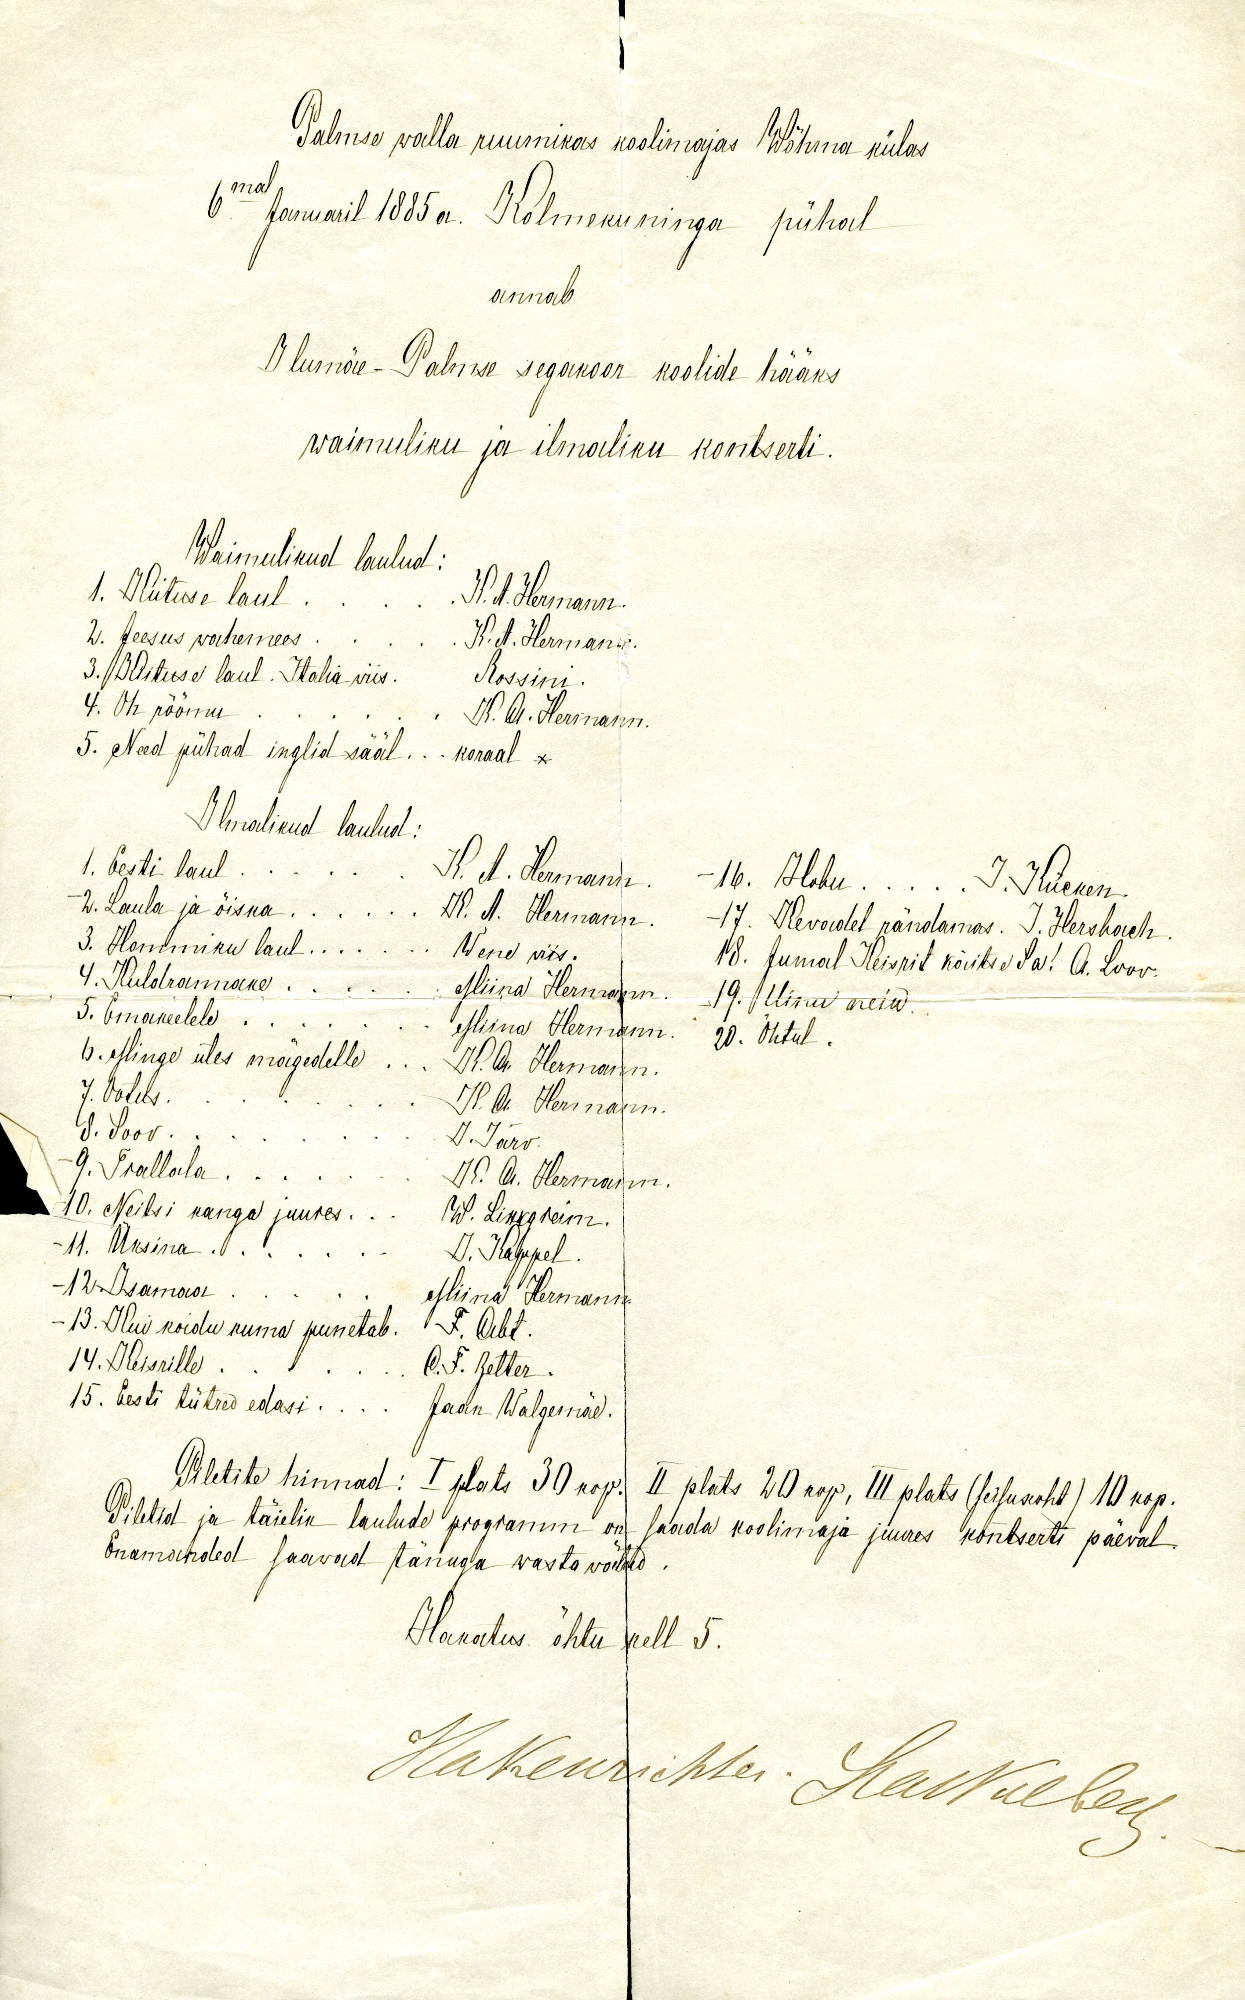 Palmse walla ruumikas koolimajas Wõhma külas
6mal Januaril 1885 a. Kolmekuninga pühal
annab
Ilumäe-Palmse segakoor koolide hääks
waimuliku ja ilmaliku kontserti.
Waimulikud laulud:
1. Kiituse laul . . . . . K. A. Hermann.
2. Jeesus vahemees . . . . K. A. Hermann.
3. Kiituse laul. Italia viis. Rossini.
4. Oh rõõmu . . . . . . K. A. Hermann.
5. Need pühad inglid sääl . . . koraal x
Ilmalikud laulud:
1. Eesti laul . . . . . . K. A. Hermann.
-2. Laula ja õiska . . . . . . K. A. Hermann.
3. Hommiku laul . . . . . . Wene viis.
4. Kuldrannake . . . . . . Miina Hermann.
5. Emakeelele . . . . . . . Miina Hermann.
6. Minge üles mägedelle . . . K. A. Hermann.
7. Ootus. . . . . . . . K. A. Hermann.
8. Soov. . . . . . . . D. Järv.
-9. Trallala . . . . . . . K. A. Hermann.
-10. Neitsi kanga juures . . . W.
-11. Üksina . . . . . . . J. Kappel.
-12. Isamaa . . . . . Miina Hermann
-13. Kui koidu kuma punetab. F. Abt.
14. Keisrille . . . . . . . C. F. Zelter.
15. Eesti tütred edasi . . . . Jaan Walgemäe.
-16. Hobu . . . . . J. Kücken.
-17. Kevadel rändamas. J. Hersbach.
18. Jumal Keisrit kaitse Sa! A. Lvov.
-19. Minu neiu.
20. Õhtul.
Piletite hinnad: I plats 30 kop. II plats 20 kop, III plats (seisukoht) 10 kop.
Piletid ja täielik laulude programm on saada koolimaja juures kontserti päeval.
Enamanded saavad tänuga wasta võetud.
Hakatus õhtu kell 5.
Hakenrichter.